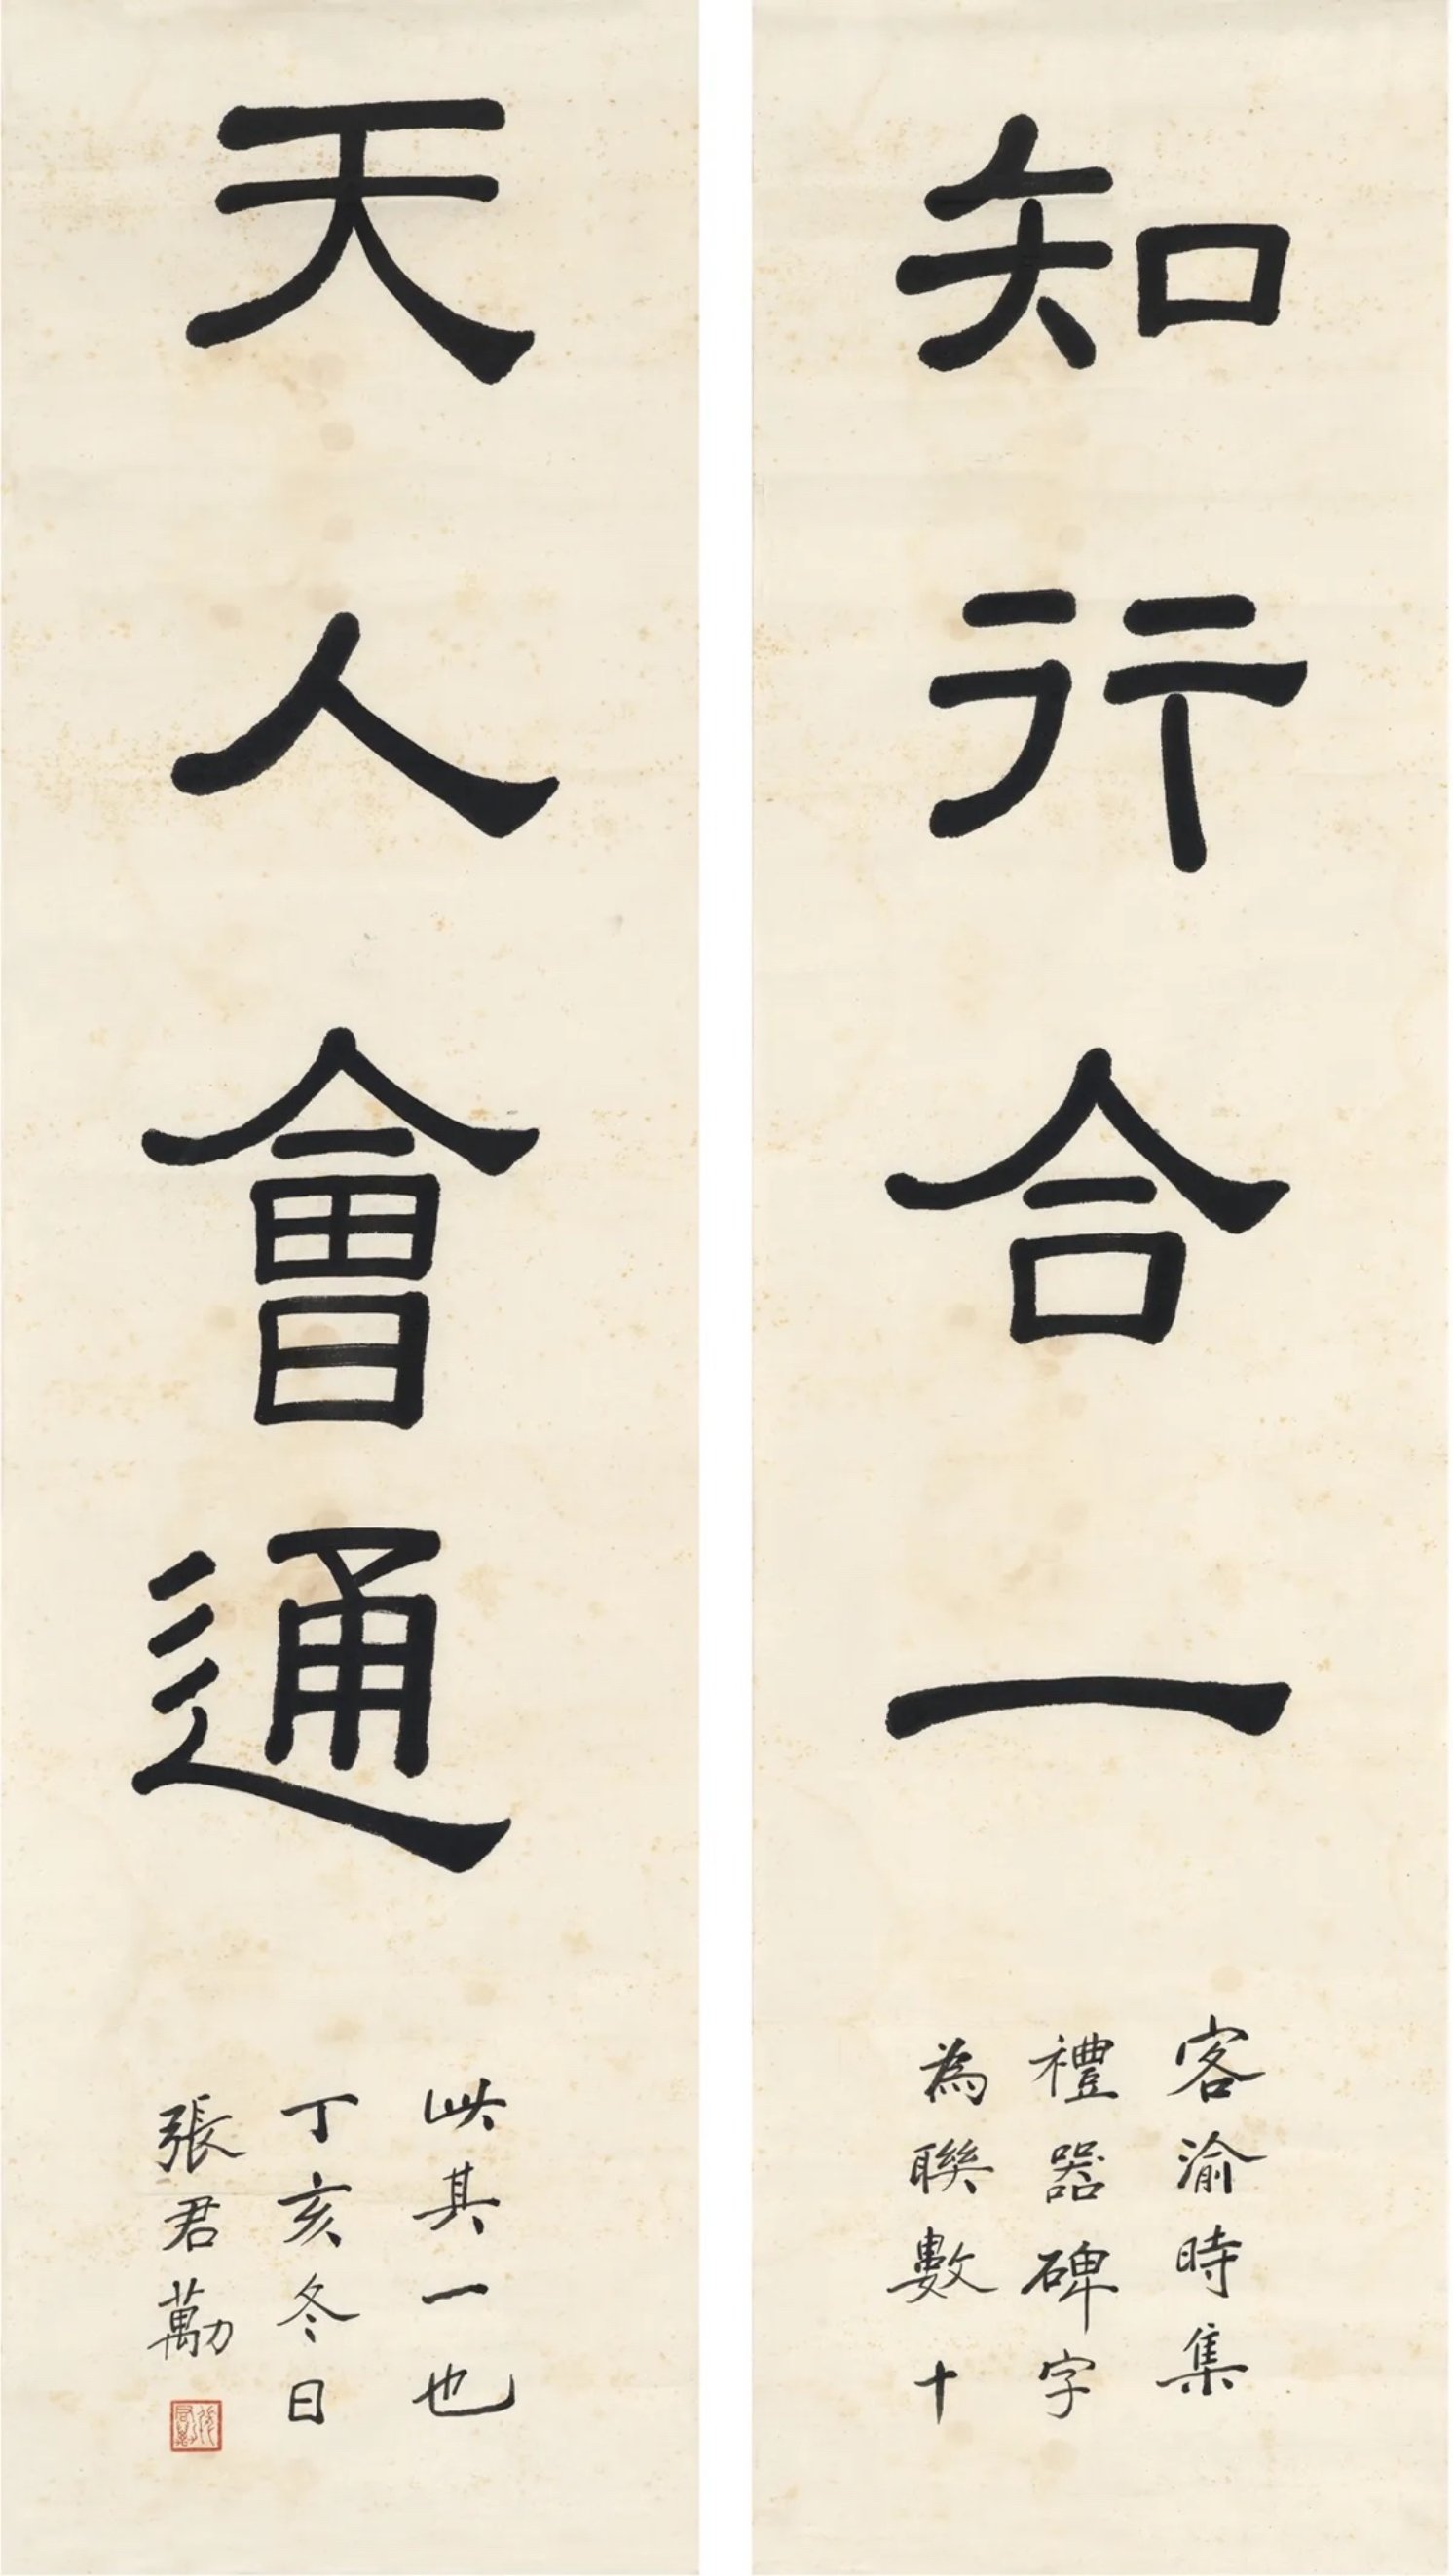 知行合一
客渝時集
禮器碑字
為聯數十
天人會通
此其一也
丁亥冬日
張君勱